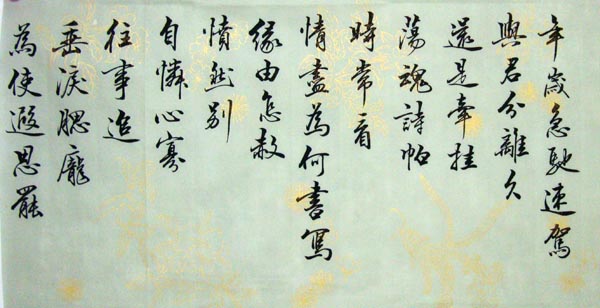 年歲急馳速駕
與君分離久
還是牽挂
蕩魂詩帕
時常看
情盡為何書寫
緣由怎赦
憤然別
自憐心寡
往事追
垂淚腮龐
為使遐思罷